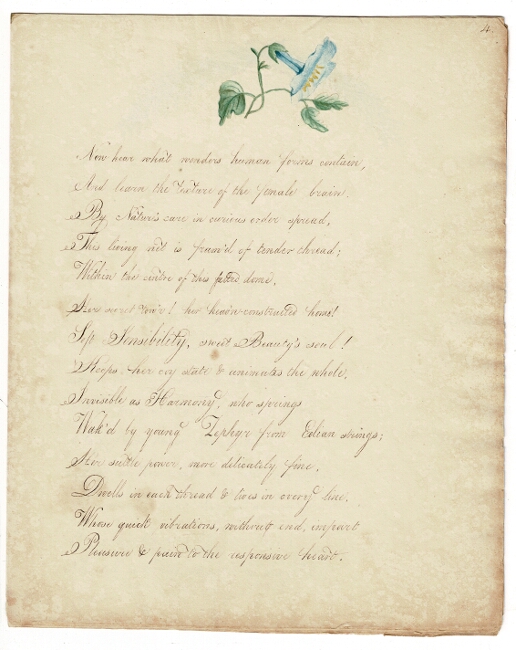 4.
Now hear what wonders human forms contain,
And learn the texture of the female brain.
By Nature's care in curious order spread,
This living net is fram'd of tender thread;
Within the centre of this fretted dome,
Her secret tow'r! her heav'n-constructed home!
Sits Sensibility, sweet Beauty's soul!
Keeps her coy state & animates the whole.
Invisible as Harmony, who springs
Wak'd by young Zephyr from Eolian strings;
Her subtle power, more delicately fine,
Dwells in each thread & lives in every line.
Whose quick vibrations, without end, impart
Pleasure & pain to the responsive heart.